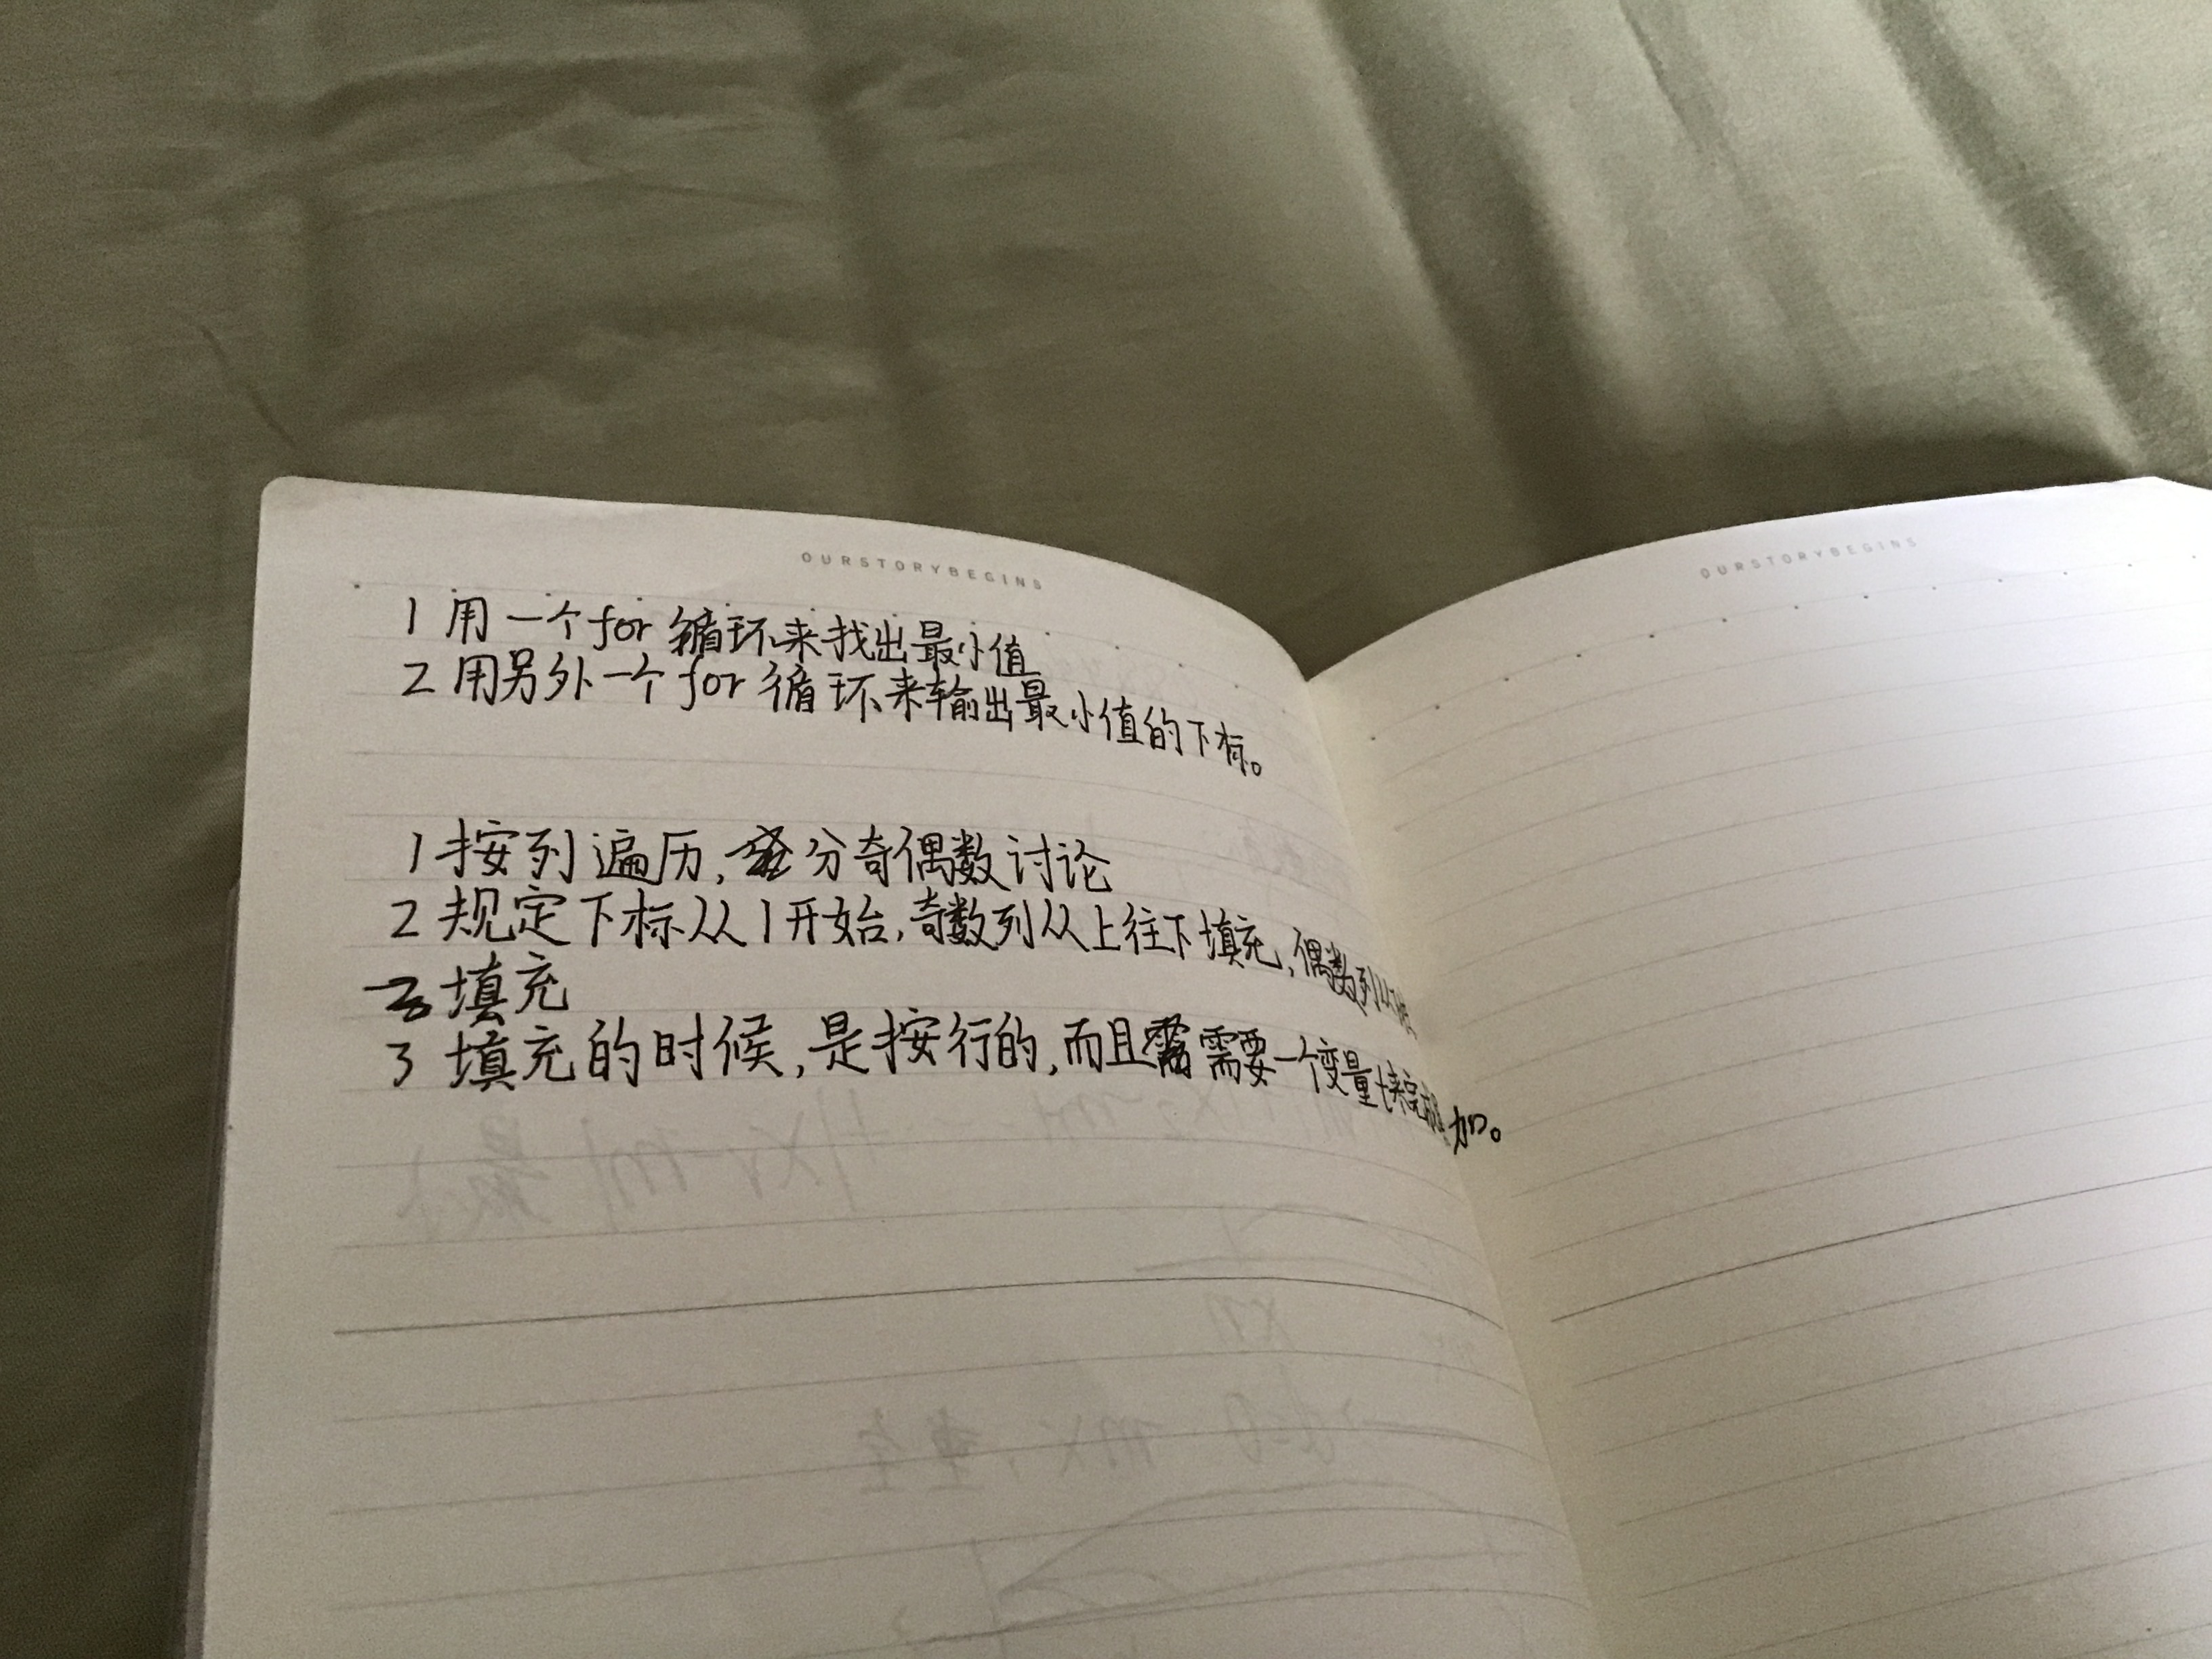 OURSTORYBEGINS
1 用一个for循环来找出最小值
2 用另外一个for循环来输出最小值的下标。
1 按列遍历, 分奇偶数讨论
2 规定下标从1开始,奇数列从上往下填充,偶数列从
3 填充
3 填充的时候,是按行的,而且需要一个变量 加。
OURSTORYBEGINS